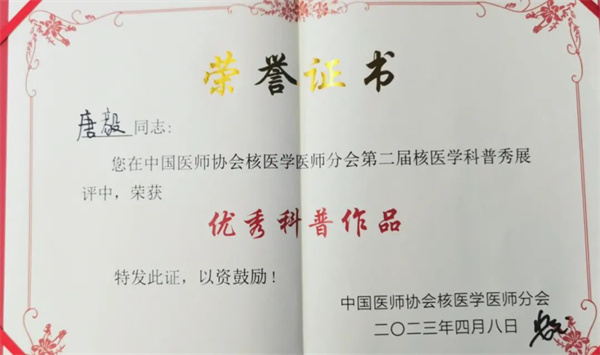 荣誉证书
唐毅同志:
您在中国医师协会核医学医师分会第二届核医学科普秀展
评中，荣获
优秀科普作品
特发此证，以资鼓励！
中国医师协会核医学医师分会
二〇二三年四月八日